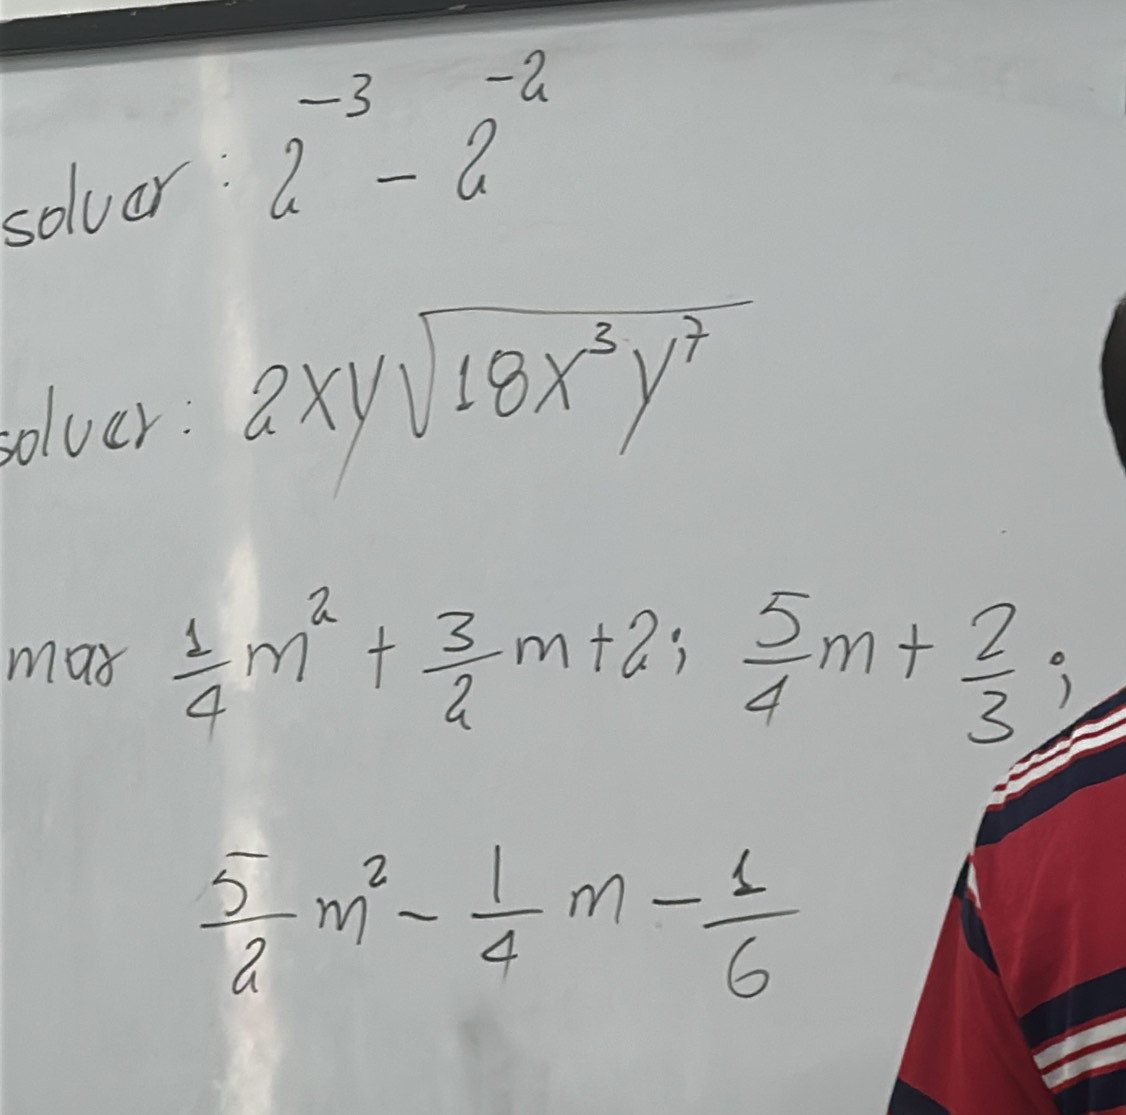 solver: 2⁻³ - 2⁻²
solver: 2xy√(18x³y⁷)
mar 1/4 m² + 3/2 m + 2; 5/4 m + 2/3;
5/2 m² - 1/4 m - 1/6